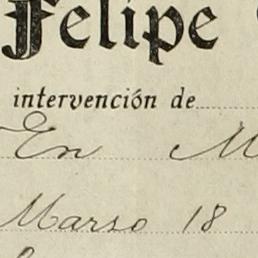 Felipe
intervención de
En M
Marzo 18